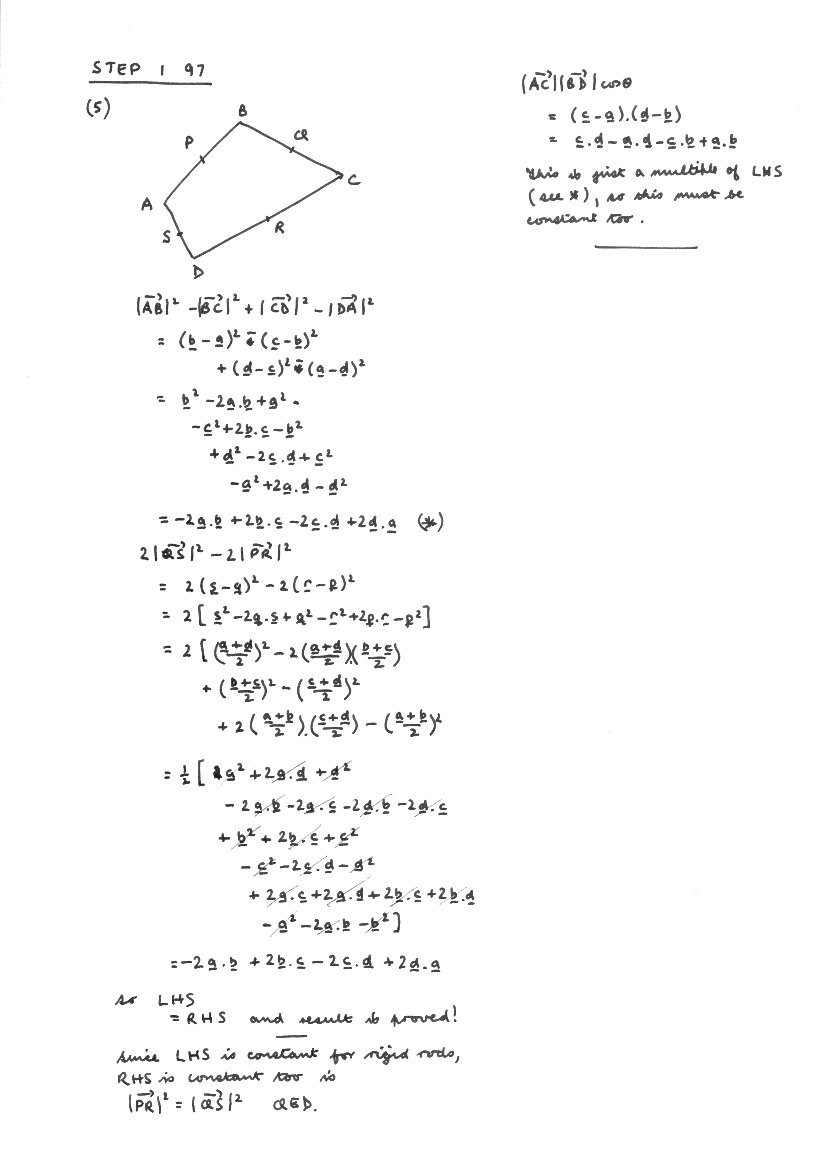 STEP 1 97
(5)
B
P
Q
C
A
S
R
D
|AB→|² - |BC→|² + |CD→|² - |DA→|²
= (b - a)² - (c - b)²
+ (d - c)² - (a - d)²
= b² - 2a.b + a²
- c² + 2b.c - b²
+ d² - 2c.d + c²
- a² + 2a.d - d²
= -2a.b + 2b.c - 2c.d + 2d.a (*)
2|QS→|² - 2|PR→|²
= 2(s - q)² - 2(r - p)²
= 2[s² - 2q.s + q² - r² + 2p.r - p²]
= 2[((a+d)/2)² - 2((a+d)/2).((b+c)/2)
+ ((b+c)/2)² - ((c+d)/2)²
+ 2((a+b)/2).((c+d)/2) - ((a+b)/2)²
= ½[a² + 2a.d + d²
- 2a.b - 2a.c - 2d.b - 2d.c
+ b² + 2b.c + c²
- c² - 2c.d - d²
+ 2a.c + 2a.d + 2b.c + 2b.d
- a² - 2a.b - b²]
= -2a.b + 2b.c - 2c.d + 2d.a
so LHS
= RHS and result is proved!
Since LHS is constant for rigid rods,
RHS is constant too is
|PR→|² = |QS→|² QED.
|AC→||BD→|cosθ
= (c - a).(d - b)
= c.d - a.d - c.b + a.b
This is just a multiple of LHS
(see *), so this must be
constant too.